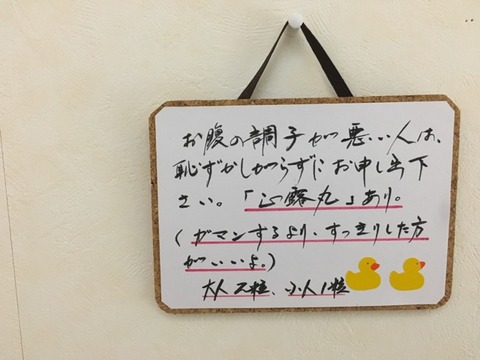 お腹の調子が悪い人は、
恥ずかしがらずにお申し出下
さい。「正露丸」あり。
(ガマンするより、すっきりした方
がいいよ。)
大人2粒、小人1粒